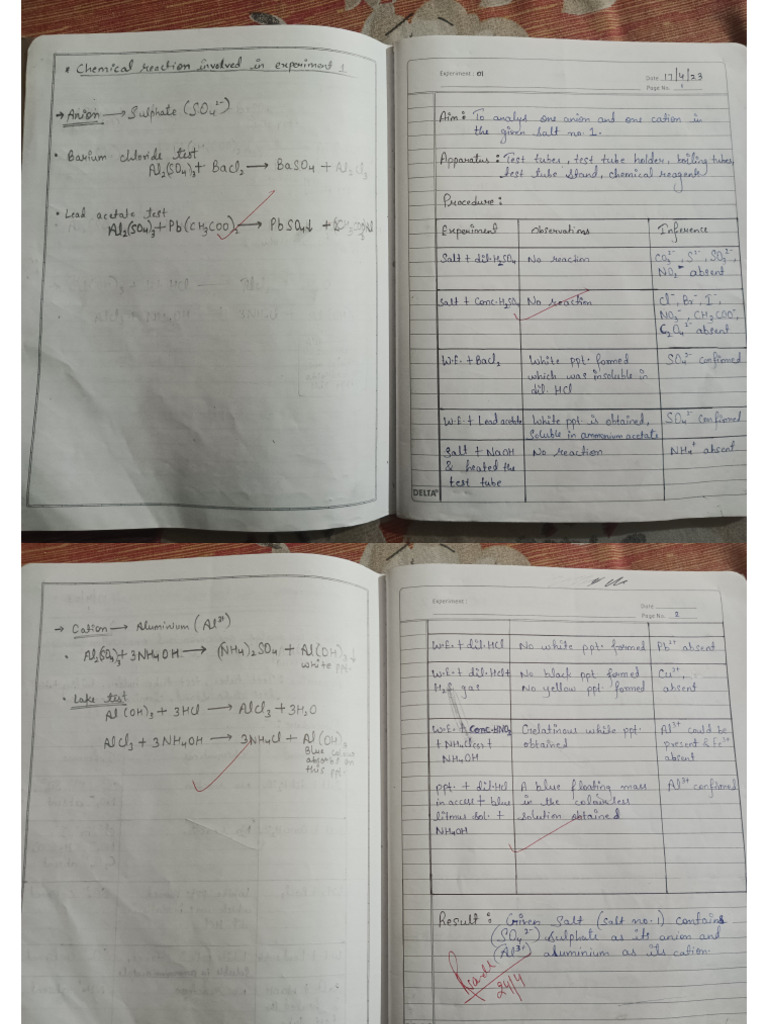 • Chemical reaction involved in experiment 1
→ Anion → Sulphate (SO₄²⁻)
• Barium chloride test
Al₂(SO₄)₃ + BaCl₂ → BaSO₄ + Al₂Cl₃
• Lead acetate test
Al₂(SO₄)₃ + Pb(CH₃COO)₂ → PbSO₄↓ +
Experiment : 01
Date 17/4/23
Page No. 1
Aim : To analys one anion and one cation in
the given salt no. 1.
Apparatus : Test tubes, test tube holder, boiling tubes,
test tube stand, chemical reagents
Procedure :
Experiment Observations Inference
Salt + dil. H₂SO₄ No reaction CO₃²⁻, S²⁻, SO₃²⁻,
NO₂⁻ absent
Salt + Conc. H₂SO₄ No reaction Cl⁻, Br⁻, I⁻,
NO₃⁻, CH₃COO⁻,
C₂O₄²⁻ absent
W.E. + BaCl₂ White ppt. formed SO₄²⁻ confirmed
which was insoluble in
dil. HCl
W.E + Lead acetate White ppt is obtained, SO₄²⁻ confirmed
soluble in ammonium acetate
Salt + NaOH No reaction NH₄⁺ absent
& heated the
test tube
DELTA
→ Cation → Aluminium (Al³⁺)
• Al₂(SO₄)₃ + 3NH₄OH → (NH₄)₂SO₄ + Al(OH)₃↓
white ppt.
• Lake test
Al(OH)₃ + 3HCl → AlCl₃ + 3H₂O
AlCl₃ + 3NH₄OH → 3NH₄Cl + Al(OH)₃
Blue colour
absorbs on
this ppt.
Experiment :
Date
Page No. 2
W.E. + dil. HCl No white ppt. formed Pb²⁺ absent
W.E. + dil. HCl + No black ppt formed Cu²⁺,
H₂S gas No yellow ppt formed absent
W.E. + conc. HNO₃ Gelatinous white ppt. Al³⁺ could be
+ NH₄Cl + obtained present & Fe³⁺
NH₄OH absent
ppt. + dil. HCl A blue floating mass Al³⁺ confirmed
in access + blue in the colourless
litmus sol. + solution obtained
NH₄OH
Result : Given Salt (salt no. 1) contains
(SO₄²⁻) sulphate as its anion and
(Al³⁺) aluminium as its cation.
24/4